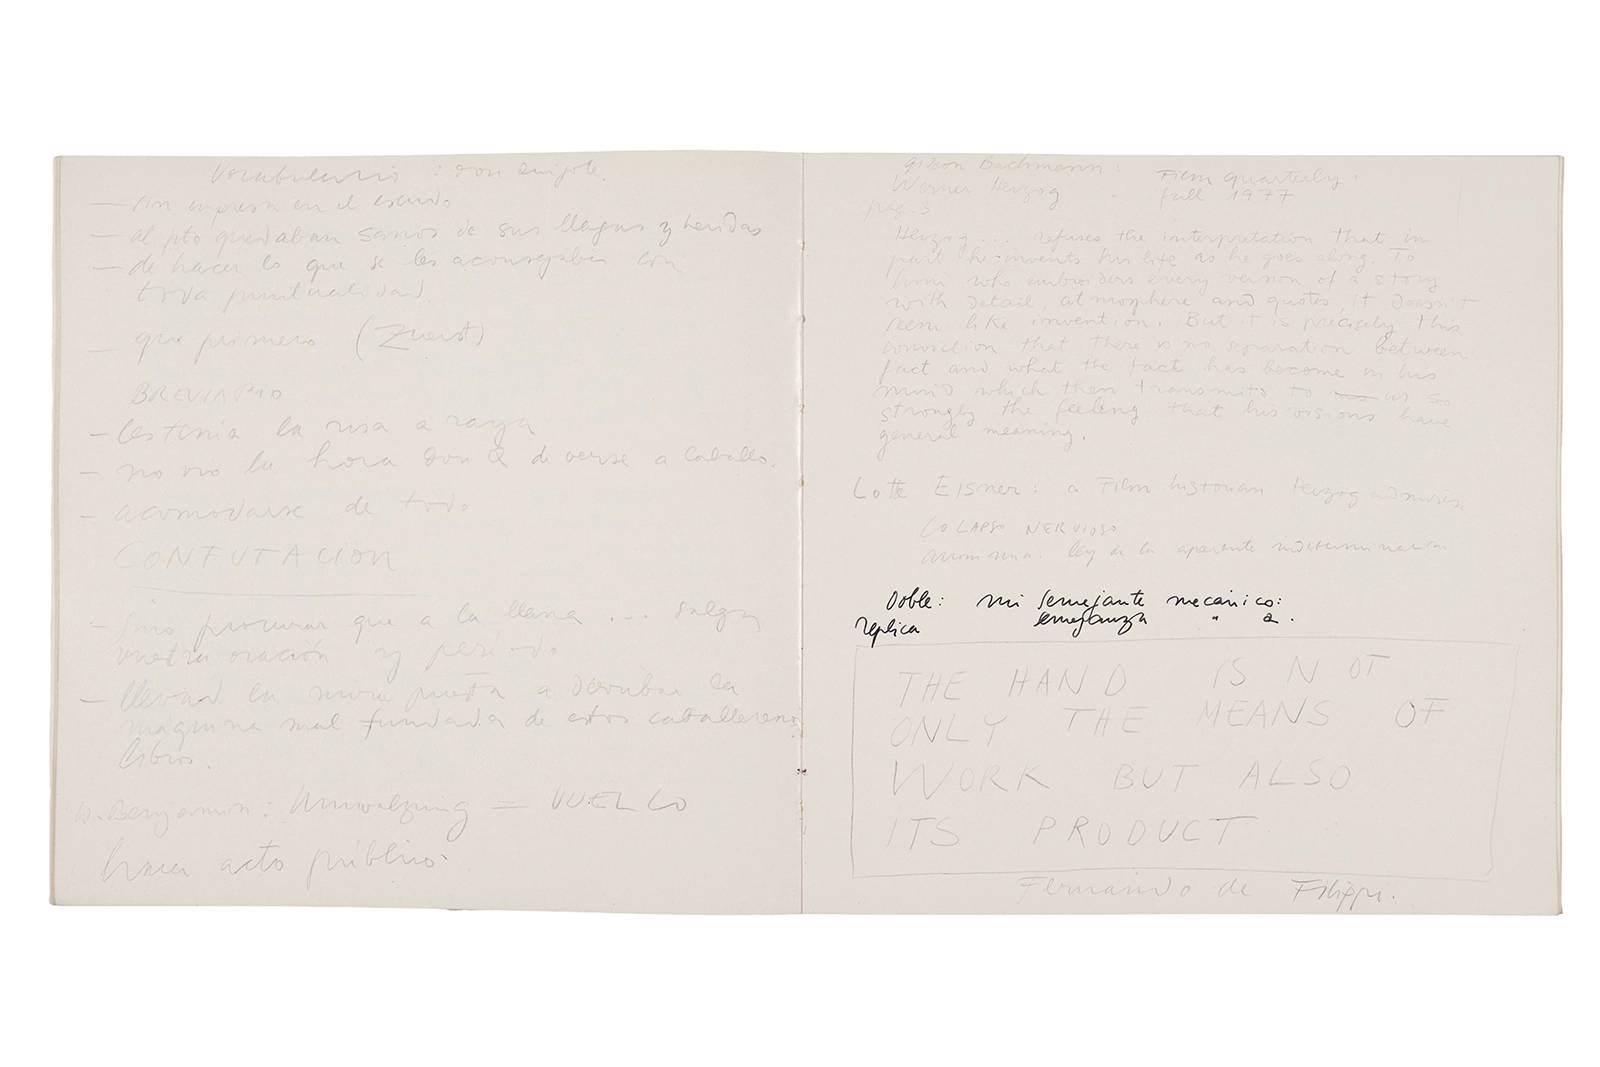 Vocabulario : Don Quijote.
— sin empresa en el escudo
— al pto quedaban sanos de sus llagas y heridas
— de hacer lo que se les aconsejaba con
toda puntualidad.
— que primero (Zuerst)
BREVIARIO
— les tenía la risa a raya
— no vio la hora Don Q de verse a caballo.
— acomodarse de todo
CONFUTACION
— Sino procurar que a la llana ... salga
vuestra oración y período
— llevad la mira puesta a derribar la
máquina mal fundada de estos caballerescos
libros.
W. Benjamin: Umwälzung = VUELCO
hacer acto público.
Gideon Bachmann: Film quarterly.
Werner Herzog - fall 1977
pag. 3
Herzog ... refuses the interpretation that in
part he invents his life as he goes along. To
him who embroiders every version of a story
with detail, atmosphere and quotes, it doesn't
seem like invention. But it is precisely this
conviction that there is no separation between
fact and what the fact has become in his
mind which then transmits to us so
strongly the feeling that his visions have
general meaning.
Lotte Eisner: a Film historian Herzog admires.
COLAPSO NERVIOSO
ley de la aparente indeterminación
Doble: mi semejante mecánico:
replica semejanza " a.
THE HAND IS NOT
ONLY THE MEANS OF
WORK BUT ALSO
ITS PRODUCT
Fernando de Filippi.